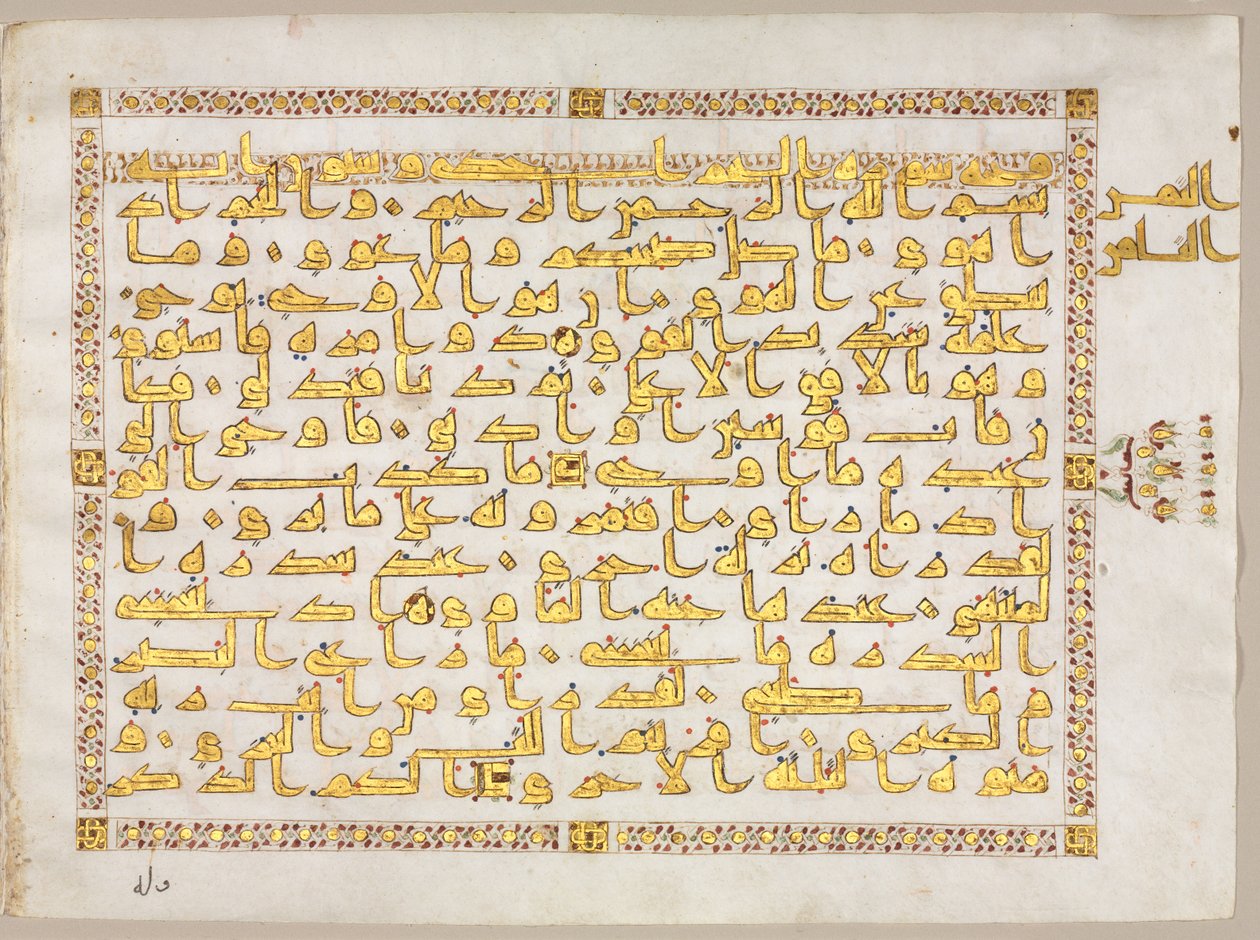 سورة والنجم احدى وستون اية
بسم الله الرحمن الرحيم والنجم اذ
ا هوى ما ضل صحبكم وما غوى وما
ينطق عن الهوى ان هو الا وحي يوحى
علمه شديد القوى ذو مرة فاستوى
وهو بالافق الاعلى ثم دنا فتدلى فكا
ن قاب قوسين او ادنى فاوحى الى
عبده ما اوحى ما كذب الفو
اد ما راى افتمرونه على ما يرى و
لقد راه نزلة اخرى عند سدرة ا
لمنتهى عندها جنة الماوى اذ يغشى
السدرة ما يغشى ما زاغ البصر
وما طغى لقد راى من ايت ربه
الكبرى افريتم اللت والعزى و
منوة الثلثة الاخرى الكم الذكر
الثمن
الثامن
وله